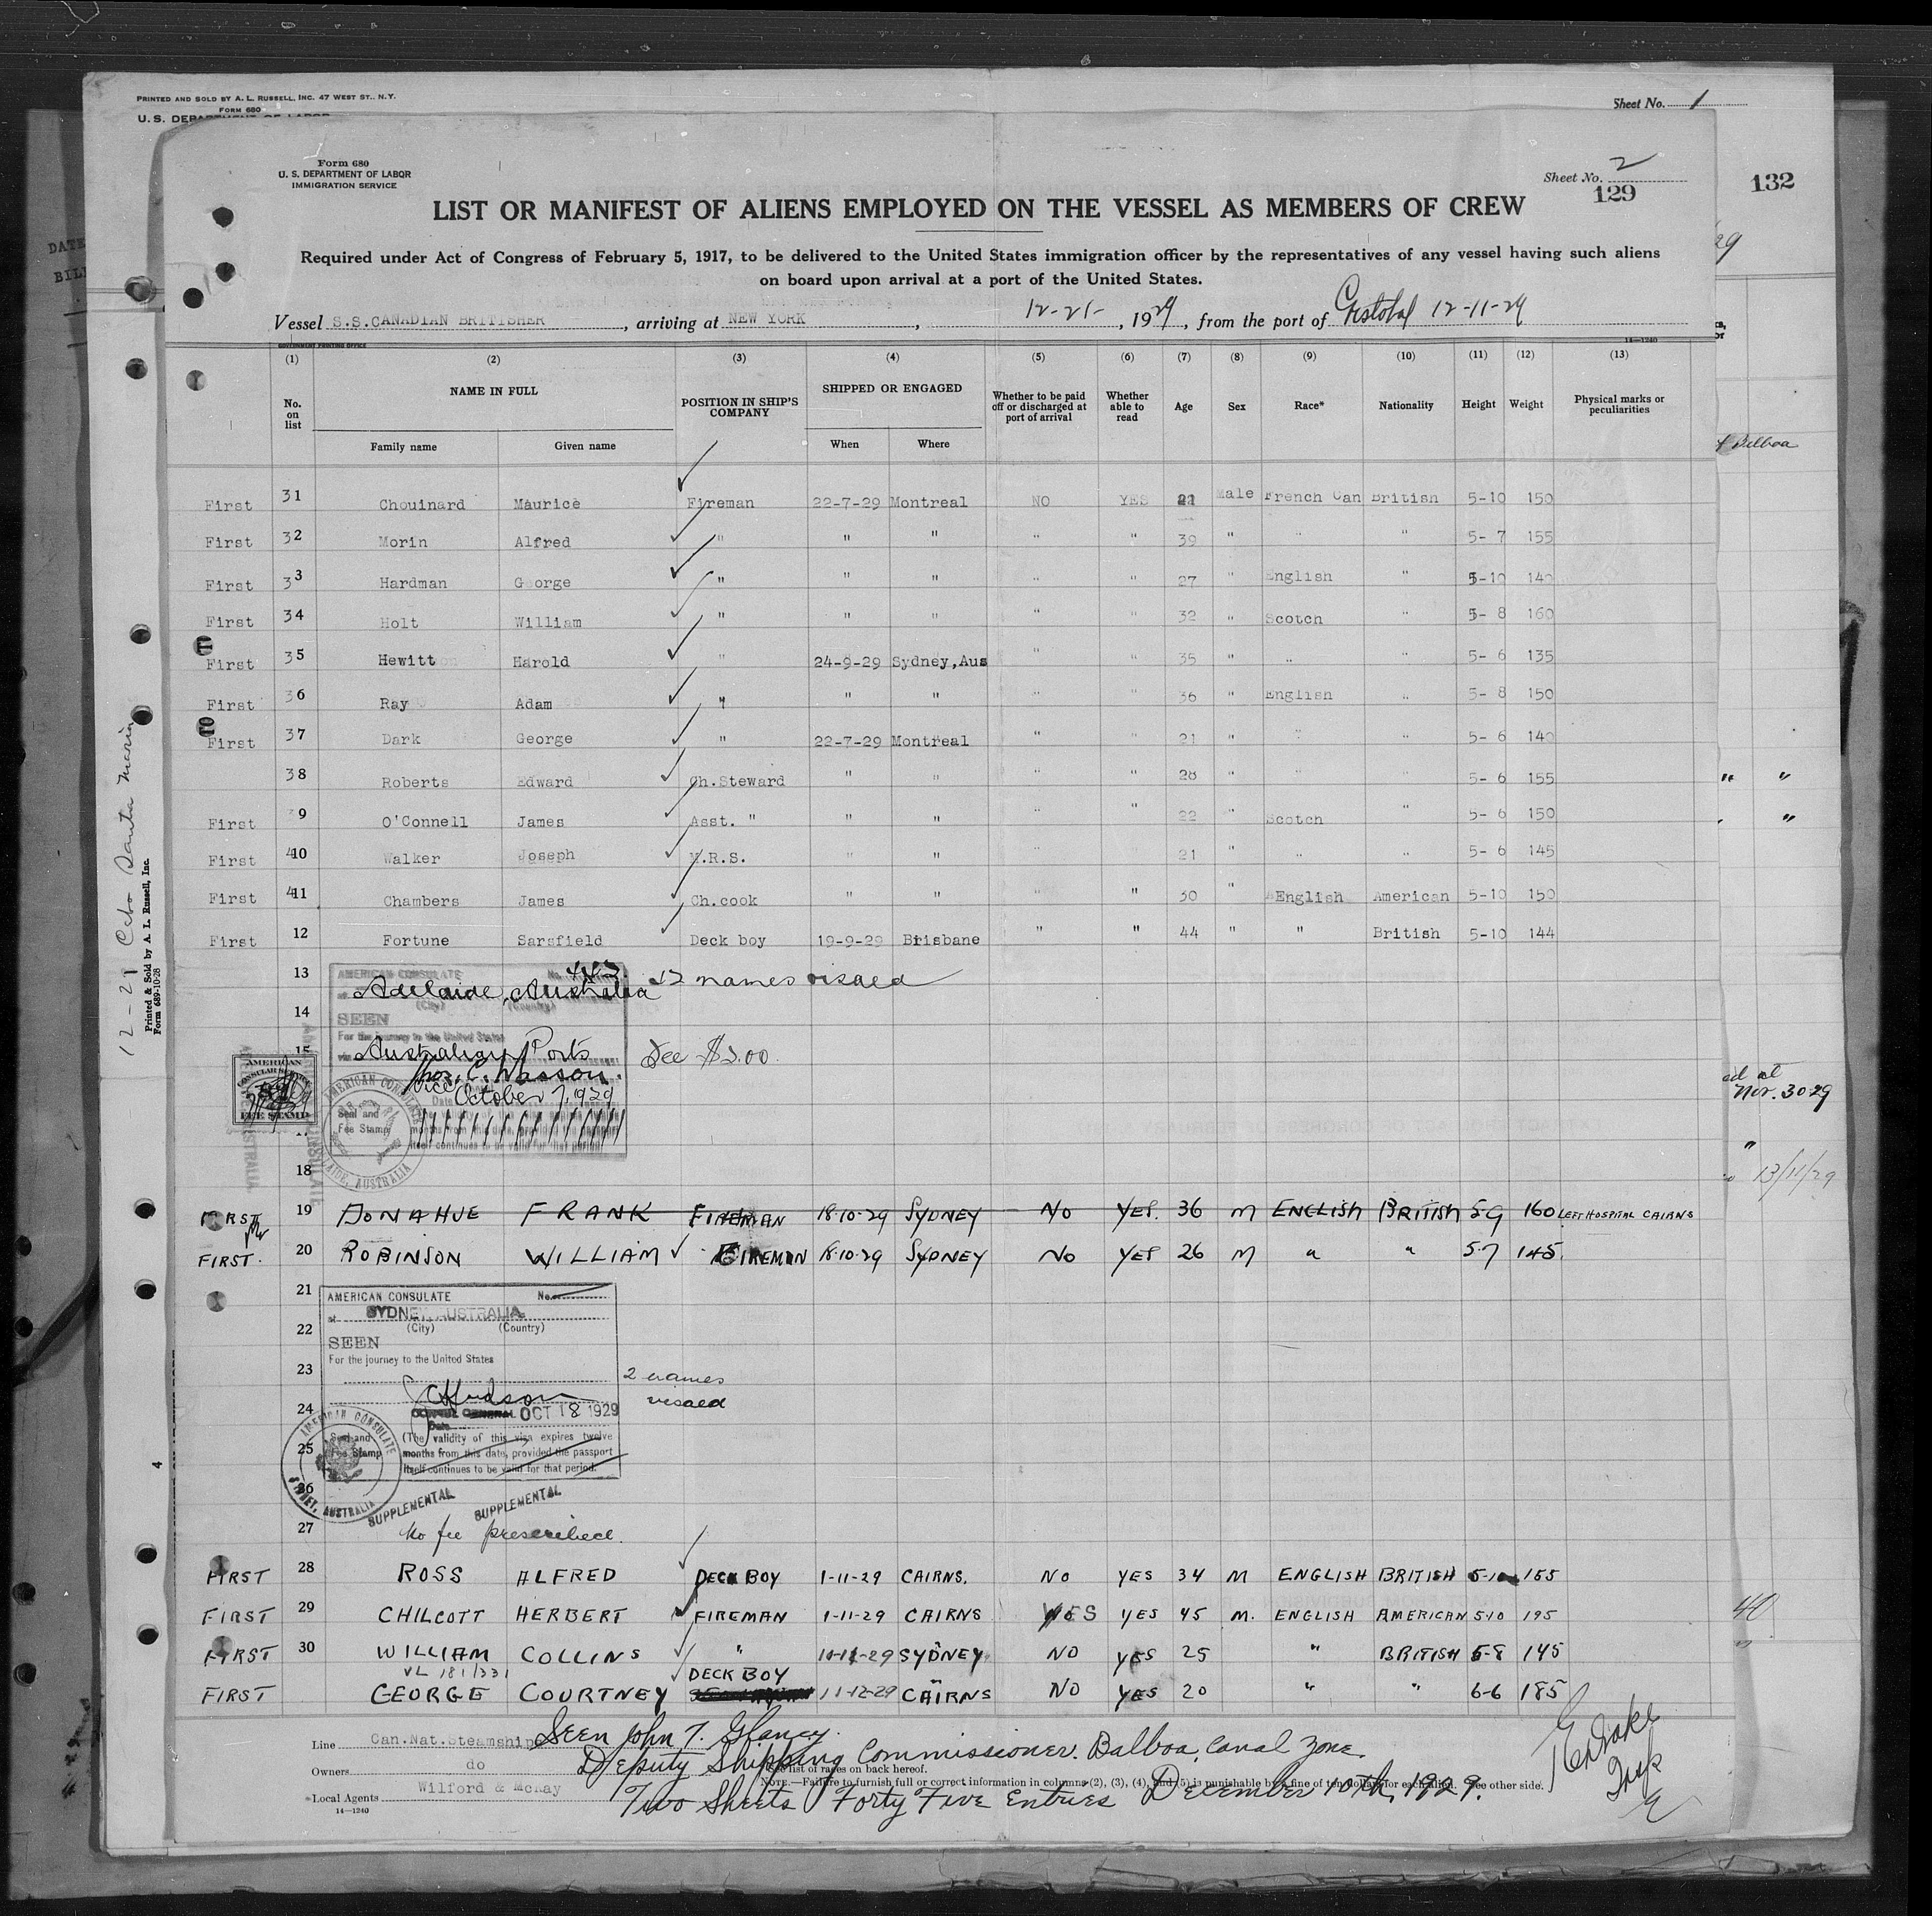 PRINTED AND SOLD BY A. L. RUSSELL, INC. 47 WEST ST., N.Y.
FORM 680
U. S. DEPARTMENT OF LABOR
Sheet No. 1
132
Form 680
U. S. DEPARTMENT OF LABOR
IMMIGRATION SERVICE
Sheet No. 2
129
LIST OR MANIFEST OF ALIENS EMPLOYED ON THE VESSEL AS MEMBERS OF CREW
Required under Act of Congress of February 5, 1917, to be delivered to the United States immigration officer by the representatives of any vessel having such aliens
on board upon arrival at a port of the United States.
Vessel S.S.CANADIAN BRITISHER, arriving at NEW YORK, 12-21-, 1929, from the port of Cristobal 12-11-29
GOVERNMENT PRINTING OFFICE 14—1240
(1) (2) (3) (4) (5) (6) (7) (8) (9) (10) (11) (12) (13)
No. on list NAME IN FULL POSITION IN SHIP'S COMPANY SHIPPED OR ENGAGED Whether to be paid off or discharged at port of arrival Whether able to read Age Sex Race* Nationality Height Weight Physical marks or peculiarities
Family name Given name When Where
Balboa
First 31 Chouinard Maurice Fireman 22-7-29 Montreal NO YES 21 Male French Can British 5-10 150
First 32 Morin Alfred " " " " " 39 " " " 5- 7 155
First 33 Hardman G orge " " " " " 27 " English " 5-10 140
First 34 Holt William " " " " " 32 " Scotch " 5- 8 160
First 35 Hewitt Harold " 24-9-29 Sydney,Aus " " 35 " " " 5- 6 135
First 36 Ray Adam " " " " " 36 " English " 5- 8 150
First 37 Dark George " 22-7-29 Montreal " " 21 " " " 5- 6 140
38 Roberts Edward Ch.Steward " " " " 28 " " " 5- 6 155
First 9 O'Connell James Asst. " " " " " 22 " Scotch " 5- 6 150
First 410 Walker Joseph M.R.S. " " " " 21 " " " 5- 6 145
First 411 Chambers James Ch.cook " " " " 30 " English American 5-10 150
First 12 Fortune Sarsfield Deck boy 19-9-29 Brisbane " " 44 " " British 5-10 144
13 AMERICAN CONSULATE No. 443
Adelaide, Australia 12 names visaed
(City) (Country)
14 SEEN
For the journey to the United States
15 via Australian Ports Fee $2.00
Thos. C. Wasson.
Vice
Date October 7, 1929
AMERICAN CONSULAR SERVICE
FEE STAMP
Seal and Fee Stamp
AMERICAN CONSULATE ADELAIDE, AUSTRALIA
itself continues to be valid for that period
17
18
Nov. 30 29
13/11/29
FIRST 19 DONAHUE FRANK FIREMAN 18-10-29 SYDNEY NO YES. 36 M ENGLISH BRITISH 5-9 160 LEFT HOSPITAL CAIRNS
FIRST. 20 ROBINSON WILLIAM FIREMAN 18-10-29 SYDNEY NO YES 26 M " " 5-7 145.
21 AMERICAN CONSULATE No.
at SYDNEY, AUSTRALIA
22 (City) (Country)
SEEN
For the journey to the United States
23 2 names
visaed
C Hudson
24 CONSUL GENERAL OCT 18 1929
Date
25 Seal and Fee Stamp (The validity of this visa expires twelve
months from this date, provided the passport
itself continues to be valid for that period.
AMERICAN CONSULATE SYDNEY, AUSTRALIA
26
SUPPLEMENTAL SUPPLEMENTAL
27 No fee prescribed.
FIRST 28 ROSS ALFRED DECK BOY 1-11-29 CAIRNS. NO YES 34 M ENGLISH BRITISH 5-10 155
FIRST 29 CHILCOTT HERBERT FIREMAN 1-11-29 CAIRNS YES YES 45 M. ENGLISH AMERICAN 5-10 195
40
FIRST 30 WILLIAM COLLINS " 11-11-29 SYDNEY NO YES 25 " BRITISH 5-8 145
VL 181/331
FIRST GEORGE COURTNEY DECK BOY 11-12-29 CAIRNS NO YES 20 " " 6-6 185
Line Can.Nat.Steamship
Owners do
Local Agents Wilford & McKay
14—1240
Seen John T. Glancy.
Deputy Shipping Commissioner. Balboa, Canal Zone.
Two Sheets Forty Five Entries December 10th, 1929.
list of races on back hereof.
NOTE.—Failure to furnish full or correct information in columns (2), (3), (4), and (5) is punishable by a fine of ten dollars for each alien. See other side.
12-21 Cebo Santa Maria
Printed & Sold by A. L. Russell, Inc.
Form 689-10-28
4